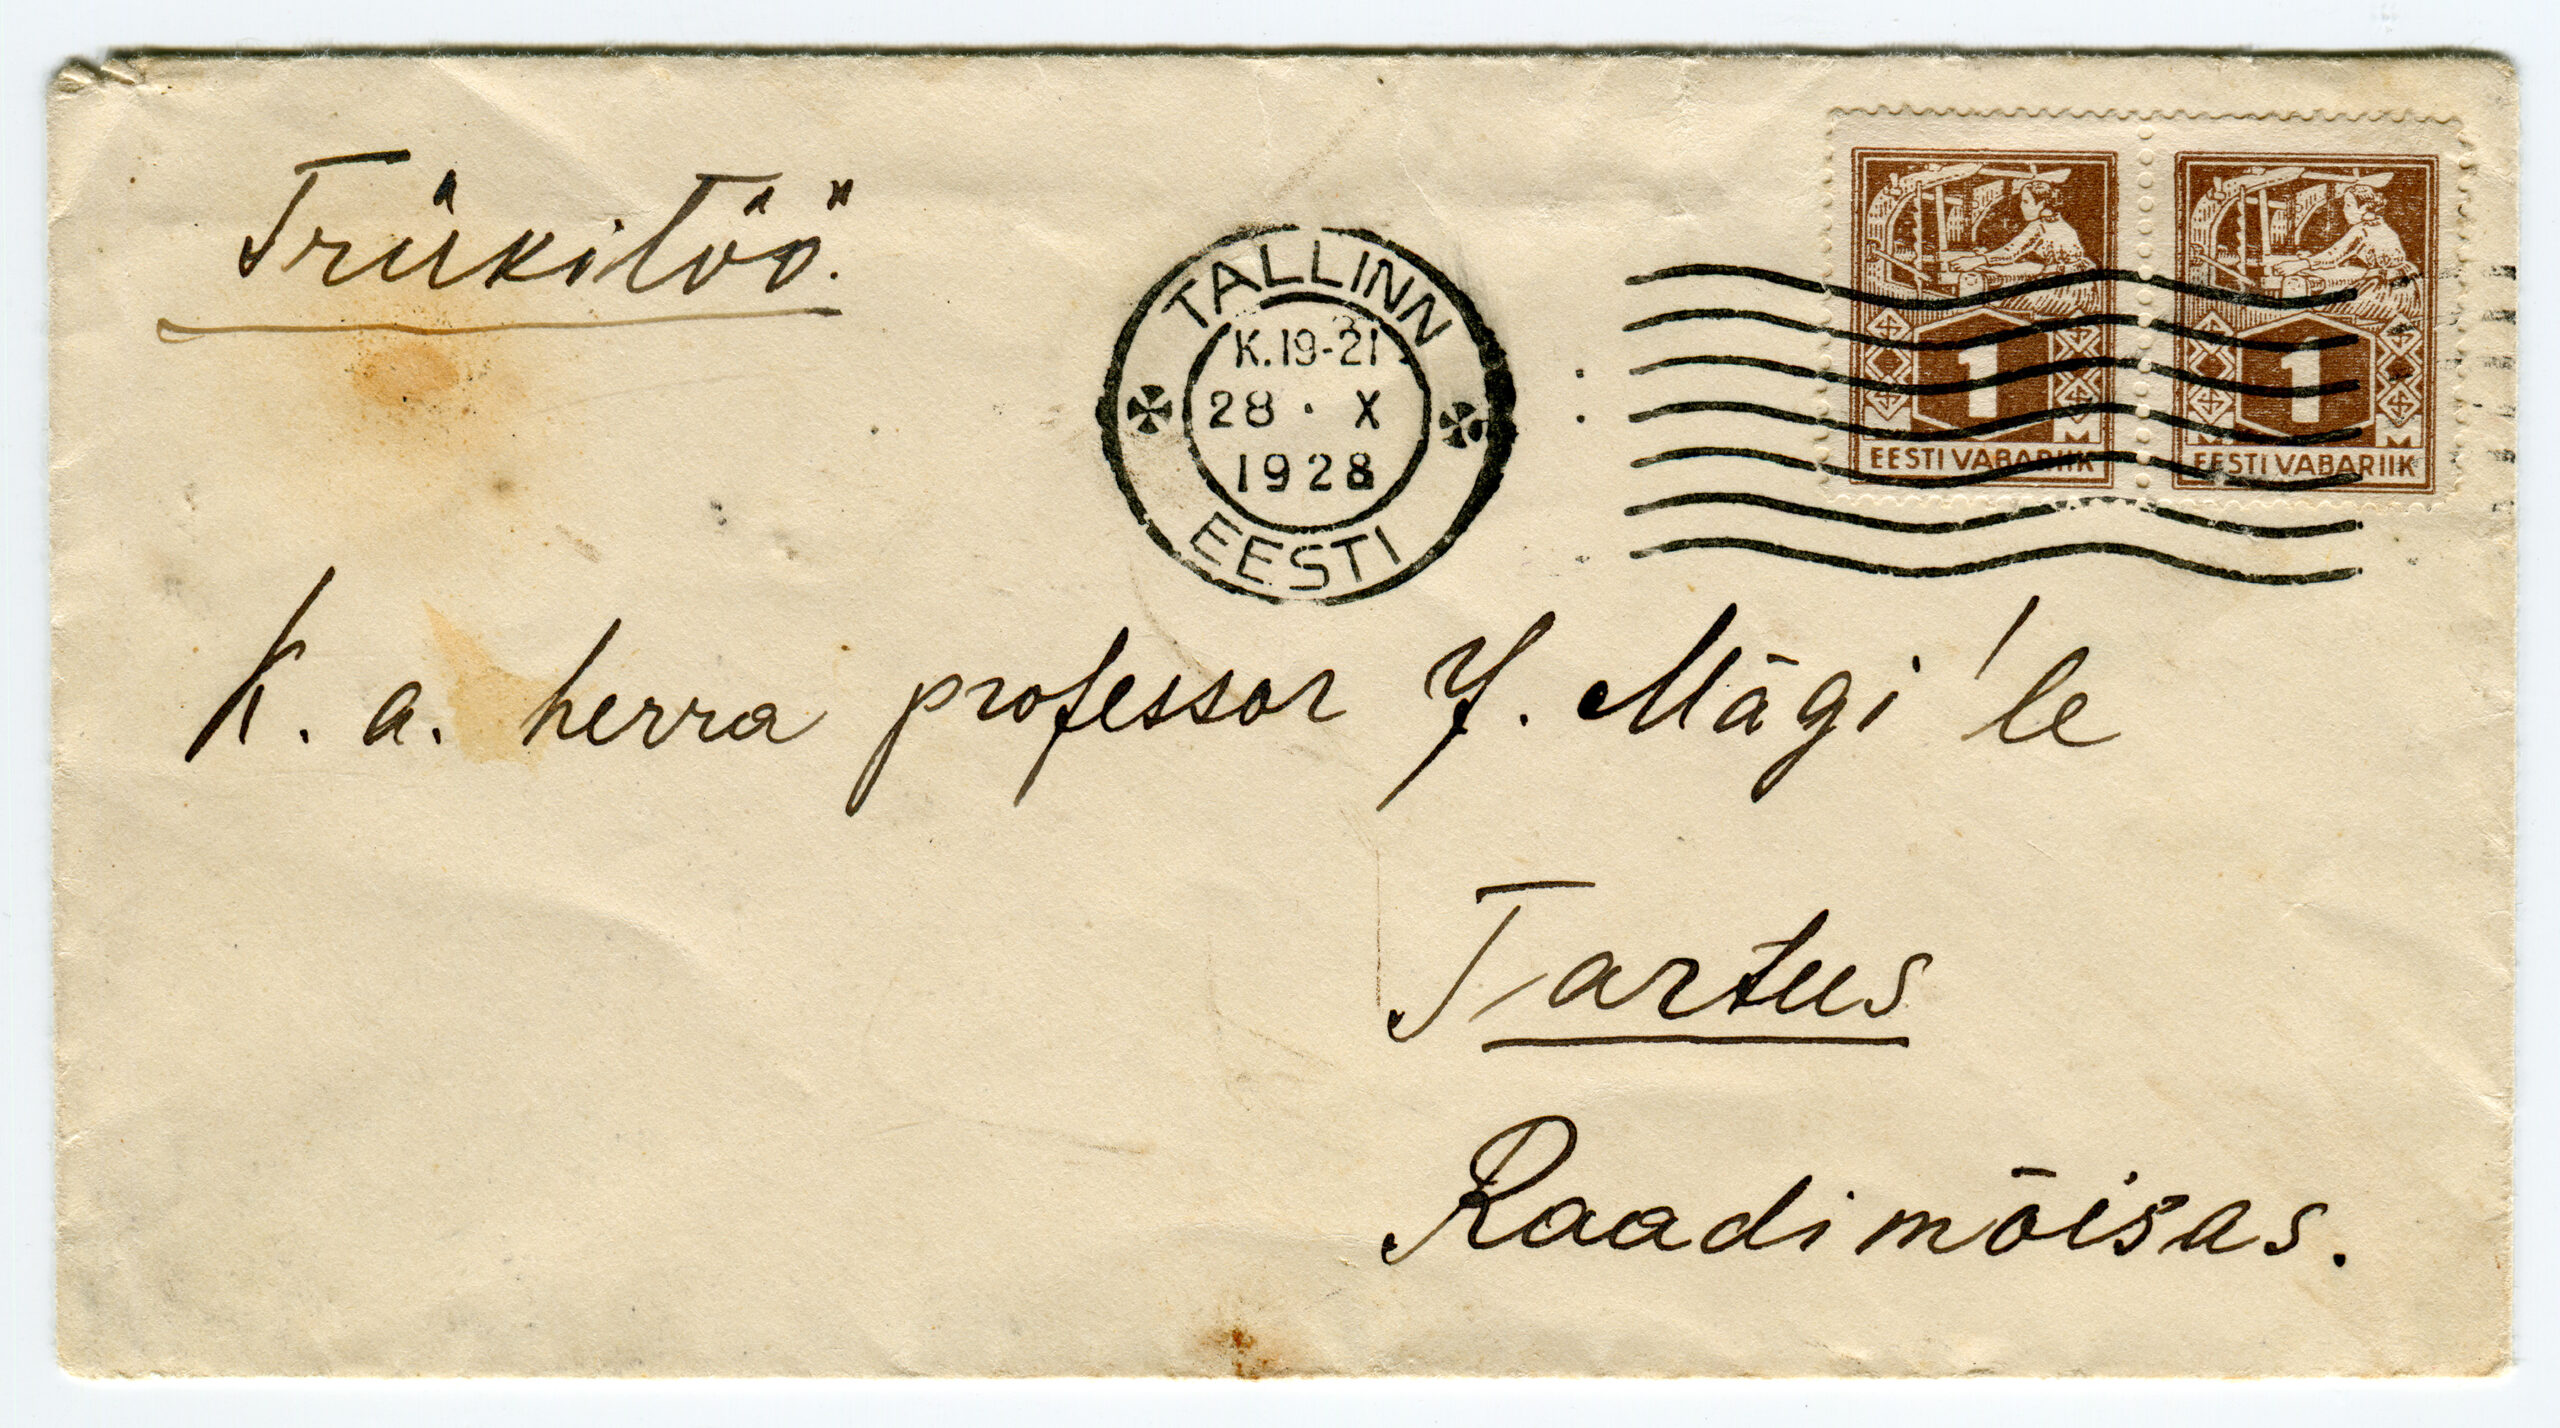 Trükitöö.
TALLINN
K. 19-21
28 · X
1928
EESTI
1
M M
EESTI VABARIIK
1
M M
EESTI VABARIIK
K. a. herra professor J. Mägi'le
Tartus
Raadimõisas.